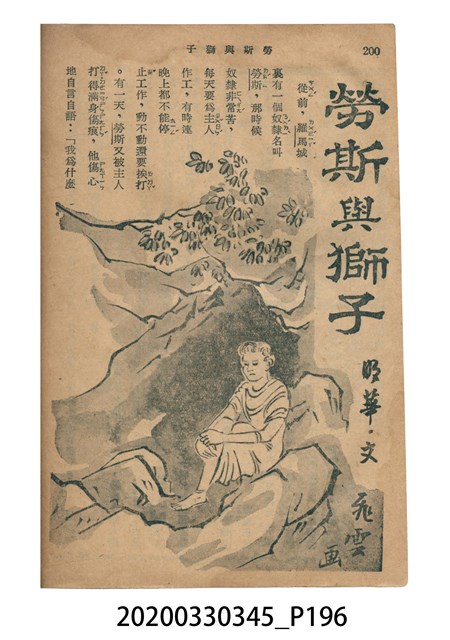 200
勞斯與獅子
勞斯與獅子
明華·文
飛雲畫
從前，羅馬城
裏有一個奴隸名叫
勞斯，那時候
奴隸非常苦，
每天要為主人
作工，有時連
晚上都不能停
止工作，動不動還要挨打
。有一天，勞斯又被主人
打得滿身傷痕，他傷心
地自言自語：「我為什麼
20200330345_P196